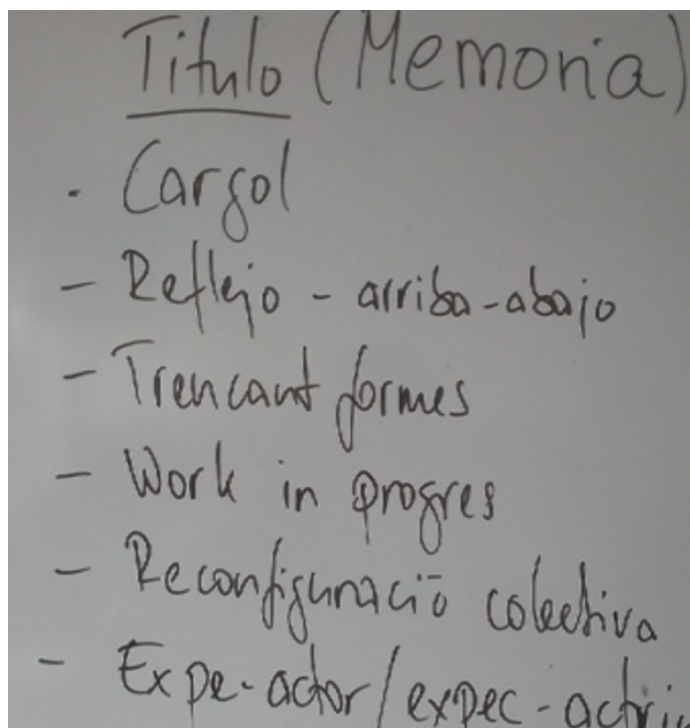 Titulo (Memoria)
. Cargol
- Reflejo - arriba-abajo
- Trencant formes
- Work in progres
- Reconfiguració colectiva
- Expe-actor/expec-actri